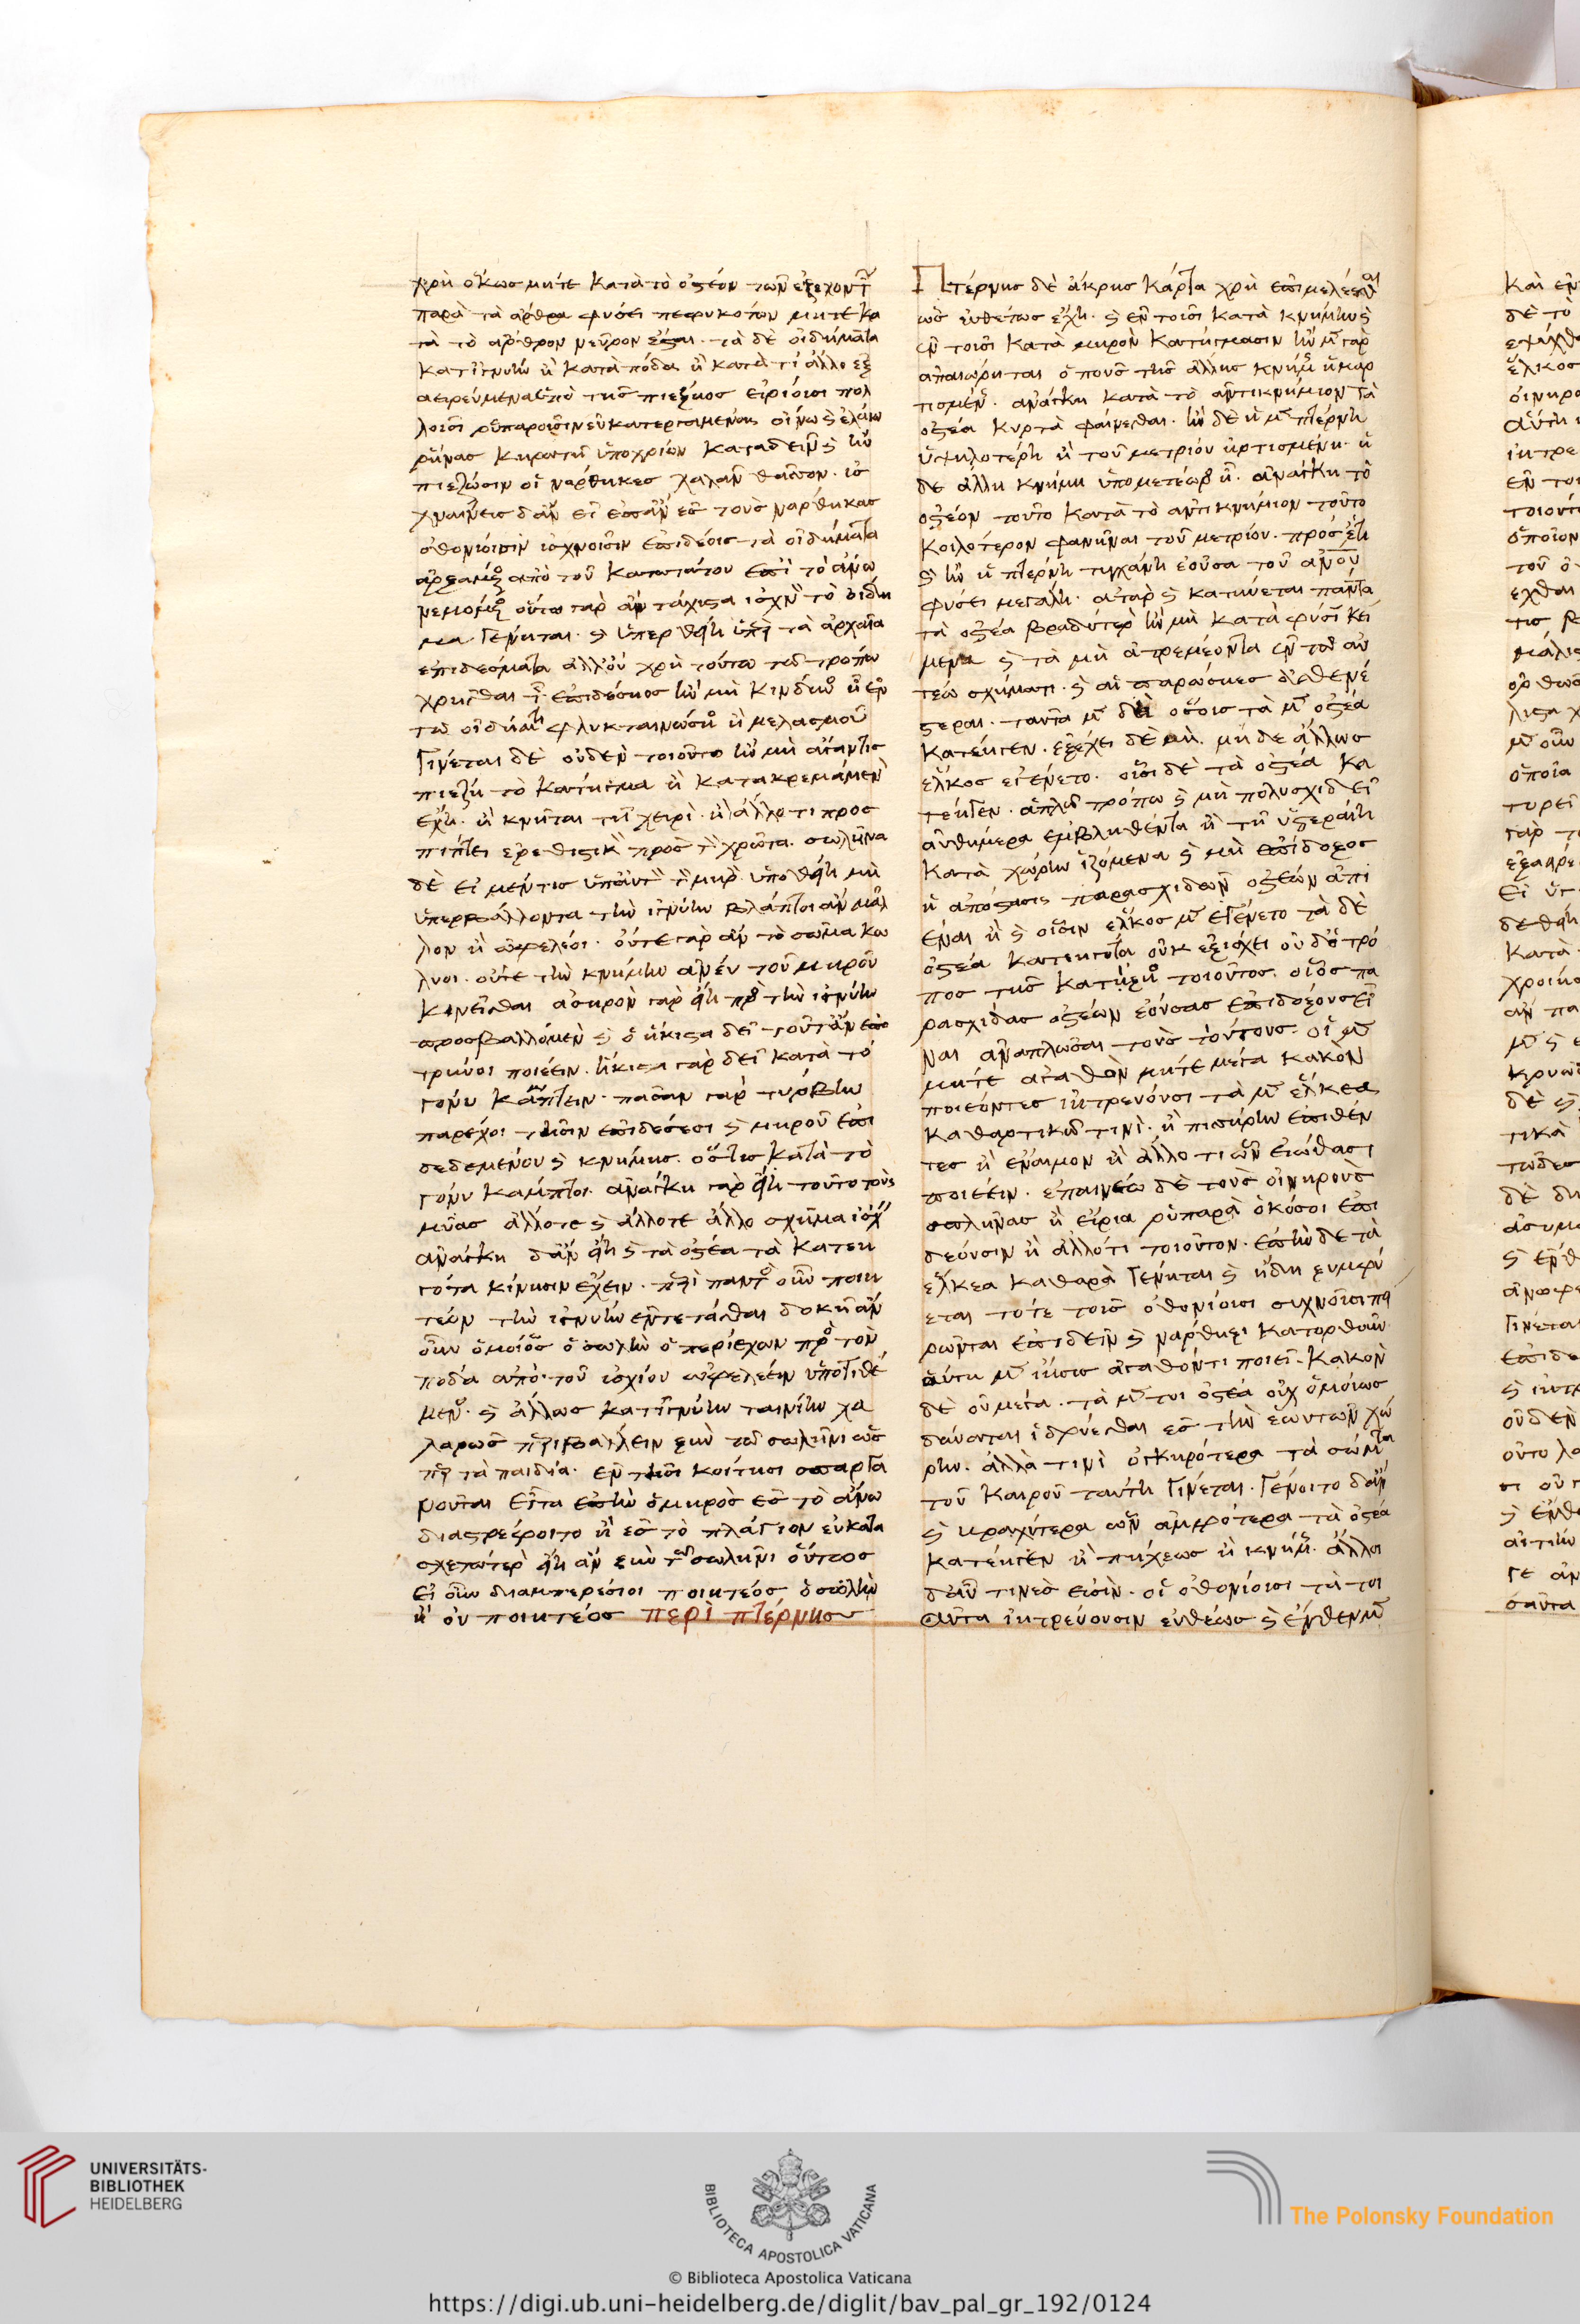 χρὴ ὅκως μήτε κατὰ τὸ ὀστέον τῶν ἐξεχόντ
παρὰ τὰ ἄρθρα φύσει πεφυκότων μήτε κα
τὰ τὸ ἄρθρον νεῦρον ἔσται· τὰ δὲ οἰδήματα
κατ ἰγνύην ἢ κατὰ πόδα ἢ κατά τι ἄλλο ἐξ
αειρεύμενα ὑπὸ τῆς πιέξηος εἰρίοισι πολ
λοῖσι ῥυπαροῖσιν εὖ κατεργασμένοις οἴνω καὶ ἐλαίω
ῥήνας κηρωτῆ ὑποχρίων καταδεῖν καὶ ἢν
πιέζωσιν οἱ νάρθηκες χαλᾶν θᾶσσον· ἰσ
χναίνεις δ ἂν εἰ ἐπ ἂν ἐς τοὺς νάρθηκας
ὀθονίοισιν ἰσχνοῖσιν ἐπιδέοις τὰ οἰδήματα
ἀρξάμενος ἀπὸ τοῦ κατωτάτου ἐπὶ τὸ ἄνω
νεμόμενος οὕτω γὰρ ἂν τάχιστα ἰσχνὸν τὸ οἴδη
μα γένηται· καὶ ὑπερ θείη ὑπὲρ τὰ ἀρχαῖα
ἐπιδέσματα ἀλλ οὐ χρὴ τούτω τῶ τρόπω
χρῆσθαι τῆς ἐπιδέσιος ἢν μὴ κίνδυνος ἦ ἐν
τῶ οἰδήματι φλυκταινώσιος ἢ μελασμοῦ
γίνεται δὲ οὐδὲν τοιοῦτο ἢν μὴ ἄγαν τις
πιέζη τὸ κάτηγμα ἢ κατακρεμάμεν
ἔχη· ἢ κνῆται τῆ χειρὶ· ἢ ἄλλο τι προσ
πίπτει ἐρεθιστικὸν πρὸς τὸν χρῶτα· σωλῆνα
δὲ εἰ μέν τις ὑπ αὐτὸν τὸν μηρὸν ὑποθείη μὴ
ὑπερβάλλοντα τὴν ἰγνύην βλάπτοι ἂν μᾶλ
λον ἢ ὠφελέοι· οὔτε γὰρ ἂν τὸ σῶμα κω
λύοι· οὔτε τὴν κνήμην ἄνευ τοῦ μηροῦ
κινεῖσθαι ἀσηρὸν γὰρ εἴη πρὸς τὴν ἰγνύην
προσβαλλόμεν καὶ ὃ ἥκιστα δεῖ τοῦτ ἂν ἐπο
τρύνοι ποιέειν· ἥκιστα γὰρ δεῖ κατὰ τὸ
γόνυ κάμπτειν· πᾶσαν γὰρ τύρβην
παρέχοι τῆσιν ἐπιδέσεσι καὶ μηροῦ ἐπι
δεδεμένου καὶ κνήμης· ὅστις κατὰ τὸ
γόνυ κάμπτοι· ἀνάγκη γὰρ εἴη τούτω τοὺς
μῦας ἄλλοτε καὶ ἄλλοτε ἄλλο σχῆμα ἴσχ
ἀνάγκη δ ἂν εἴη καὶ τὰ ὀστέα τὰ κατεη
γότα κίνησιν ἔχειν· περὶ παντὸς οὖν ποιη
τέον τὴν ἰγνύην ἐντετάσθαι δοκῆ ἂν
οὖν ὁμοίως ὁ σωλὴν ὁ περιέχων πρὸς τὸν
πόδα ἀπὸ τοῦ ἰσχίου ὠφελέειν ὑποτιθέ
μενος· καὶ ἄλλως κατ ἰγνύην ταινίην χα
λαρῶς περιβάλλειν ξὺν τῶ σωλῆνι ὡς
περ τὰ παιδία· ἐν τῆσι κοίτησι σπαργα
νοῦται εἶτα ἐπὴν ὁ μηρὸς ἐς τὸ ἄνω
διαστρέφοιτο ἢ ἐς τὸ πλάγιον εὐκατα
σχετώτερον εἴη ἂν ξὺν τῶ σωλῆνι οὕτως
εἰ οὖν διαμπερέσιοι ποιητέος ὁ σωλὴν
ἢ οὐ ποιητέος περὶ πτέρνης
Πτέρνης δὲ ἄκρης κάρτα χρὴ ἐπιμελέεσθαι
ὡς εὐθέτως ἔχη· καὶ ἐν τοῖσι κατὰ κνήμην καὶ
ἐν τοῖσι κατὰ μηρὸν κατήγμασιν ἢν μὲν γὰρ
ἀπαιώρηται ὁ ποῦς τῆς ἄλλης κνήμης ἡκαρ
τισμένης· ἀνάγκη κατὰ τὸ ἀντικνήμιον τὰ
ὀστέα κυρτὰ φαίνεσθαι· ἢν δὲ ἡ μὲν πτέρνη
ὑψηλοτέρη ἢ τοῦ μετρίου ἠρτισμένη· ἡ
δὲ ἄλλη κνήμη ὑπομετέωρος ἦ· ἀνάγκη τὸ
ὀστέον τοῦτο κατὰ τὸ ἀντικνήμιον τοῦτο
κοιλότερον φανῆναι τοῦ μετρίου· πρὸς ἔτι
καὶ ἢν ἡ πτέρνη τυγχάνη ἐοῦσα τοῦ ἀνου
φύσει μεγάλη· ἀτὰρ καὶ κατιύεται πάντα
τὰ ὀστέα βραδύτερον ἢν μὴ κατὰ φύσιν κεί
μενα καὶ τὰ μὴ ἀτρεμέοντα ἐν τῶ αὐ
τέω σχήματι· καὶ αἱ πωρώσιες ἀσθενέ
στεραι· ταῦτα μὲν δὴ ὅσοις τὰ μὲν ὀστέα
κατέηγεν· ἐξέχει δὲ μὴ· μή δε ἄλλως
ἕλκος ἐγένετο· οἷσι δὲ τὰ ὀστέα κα
τέηγεν· ἁπλῶ τρόπω καὶ μὴ πολυσχιδεῖ
αὐθήμερα ἐμβληθέντα ἢ τῆ ὑστεραίη
κατὰ χώρην ἱζόμενα καὶ μὴ ἐπίδοξος
ἡ ἀπόστασις παρασχίδων ὀστέων ἀπι
έναι ἢ καὶ οἷσιν ἕλκος μὲν ἐγένετο τὰ δὲ
ὀστέα κατεηγότα οὐκ ἐξίσχει οὐ δ ὁ τρό
πος τῆς κατήξιος τοιοῦτος· οἷος πα
ρασχίδας ὀστέων ἐούσας ἐπιδόξους εἶ
ναι ἀναπλῶσαι τοὺς τούτους· οἱ μὲν
μήτε ἀγαθὸν μήτε μέγα κακὸν
ποιέοντες ἰητρεύουσι τὰ μὲν ἕλκεα
καθαρτικῶ τινὶ· ἢ πισσηρὴν ἐπιθέν
τες ἢ ἔναιμον ἢ ἄλλο τι ὧν εἰώθασι
ποιέειν· ἐπαινέω δὲ τοὺς οἰνηροὺς
σπλῆνας ἢ εἴρια ῥυπαρὰ ὁκόσοι ἐπι
δέουσιν ἢ ἄλλό τι τοιοῦτον· ἐπὴν δὲ τὰ
ἕλκεα καθαρὰ γένηται καὶ ἤδη ξυμφύ
εται τότε τοῖς ὀθονίοισι συχνοῖσι πει
ρῶνται ἐπιδεῖν καὶ νάρθηξι κατορθοῦν
αὕτη μὲν ἴησις ἀγαθόν τι ποιεῖ· κακὸν
δὲ οὐ μέγα· τὰ μέν τοι ὀστέα οὐχ ὁμοίως
δύνανται ἱδρύεσθαι ἐς τὴν ἑωυτῶν χώ
ρην· ἀλλά τινὶ ὀγκηρότερα τὰ σώματα
τοῦ καιροῦ ταύτη γίνεται· γένοιτο δ ἂν
καὶ βραχύτερα ὧν ἀμφότερα τὰ ὀστέα
κατέηγεν ἢ πήχεως ἢ κνήμης· ἄλλοι
δ αὖ τινες εἰσὶν· οἳ ὀθονίοισι τὰ τοι
αῦτα ἰητρεύουσιν εὐθέως καὶ ἔνθεν μὲν
UNIVERSITÄTS-
BIBLIOTHEK
HEIDELBERG
BIBLIOTECA APOSTOLICA VATICANA
© Biblioteca Apostolica Vaticana
The Polonsky Foundation
https://digi.ub.uni-heidelberg.de/diglit/bav_pal_gr_192/0124